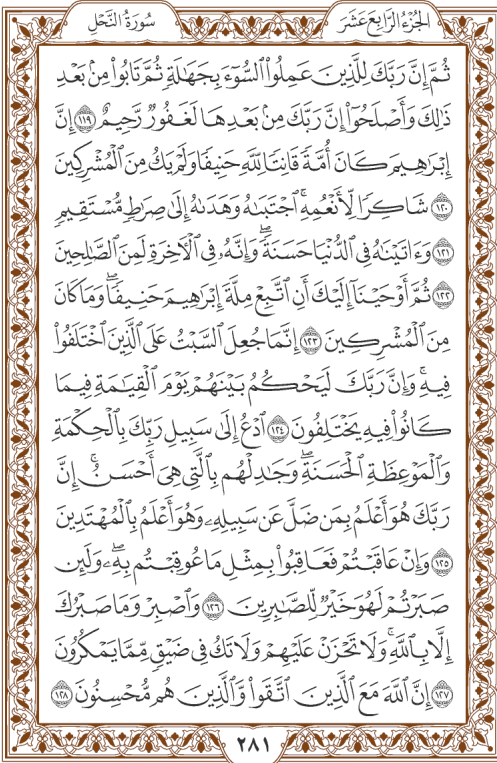 الجزء الرابع عشر
سورة النحل
ثُمَّ إِنَّ رَبَّكَ لِلَّذِينَ عَمِلُوا۟ ٱلسُّوٓءَ بِجَهَٰلَةٍ ثُمَّ تَابُوا۟ مِنۢ بَعْدِ
ذَٰلِكَ وَأَصْلَحُوٓا۟ إِنَّ رَبَّكَ مِنۢ بَعْدِهَا لَغَفُورٌ رَّحِيمٌ ١١٩ إِنَّ
إِبْرَٰهِيمَ كَانَ أُمَّةً قَانِتًا لِّلَّهِ حَنِيفًا وَلَمْ يَكُ مِنَ ٱلْمُشْرِكِينَ
١٢٠ شَاكِرًا لِّأَنْعُمِهِ ۚ ٱجْتَبَىٰهُ وَهَدَىٰهُ إِلَىٰ صِرَٰطٍ مُّسْتَقِيمٍ
١٢١ وَءَاتَيْنَٰهُ فِى ٱلدُّنْيَا حَسَنَةً ۖ وَإِنَّهُۥ فِى ٱلْءَاخِرَةِ لَمِنَ ٱلصَّٰلِحِينَ
١٢٢ ثُمَّ أَوْحَيْنَآ إِلَيْكَ أَنِ ٱتَّبِعْ مِلَّةَ إِبْرَٰهِيمَ حَنِيفًا ۖ وَمَا كَانَ
مِنَ ٱلْمُشْرِكِينَ ١٢٣ إِنَّمَا جُعِلَ ٱلسَّبْتُ عَلَى ٱلَّذِينَ ٱخْتَلَفُوا۟
فِيهِ ۚ وَإِنَّ رَبَّكَ لَيَحْكُمُ بَيْنَهُمْ يَوْمَ ٱلْقِيَٰمَةِ فِيمَا
كَانُوا۟ فِيهِ يَخْتَلِفُونَ ١٢٤ ٱدْعُ إِلَىٰ سَبِيلِ رَبِّكَ بِٱلْحِكْمَةِ
وَٱلْمَوْعِظَةِ ٱلْحَسَنَةِ ۖ وَجَٰدِلْهُم بِٱلَّتِى هِىَ أَحْسَنُ ۚ إِنَّ
رَبَّكَ هُوَ أَعْلَمُ بِمَن ضَلَّ عَن سَبِيلِهِۦ وَهُوَ أَعْلَمُ بِٱلْمُهْتَدِينَ
١٢٥ وَإِنْ عَاقَبْتُمْ فَعَاقِبُوا۟ بِمِثْلِ مَا عُوقِبْتُم بِهِۦ ۖ وَلَئِن
صَبَرْتُمْ لَهُوَ خَيْرٌ لِّلصَّٰبِرِينَ ١٢٦ وَٱصْبِرْ وَمَا صَبْرُكَ
إِلَّا بِٱللَّهِ ۚ وَلَا تَحْزَنْ عَلَيْهِمْ وَلَا تَكُ فِى ضَيْقٍ مِّمَّا يَمْكُرُونَ
١٢٧ إِنَّ ٱللَّهَ مَعَ ٱلَّذِينَ ٱتَّقَوا۟ وَّٱلَّذِينَ هُم مُّحْسِنُونَ ١٢٨
٢٨١